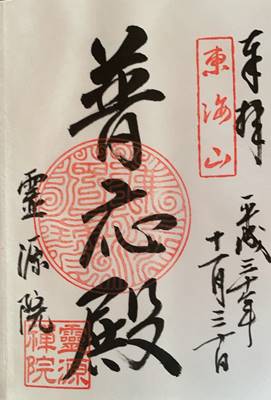 奉拝
東海山
平成三十年
十一月三十日
普応殿
靈源院
靈源
禅院